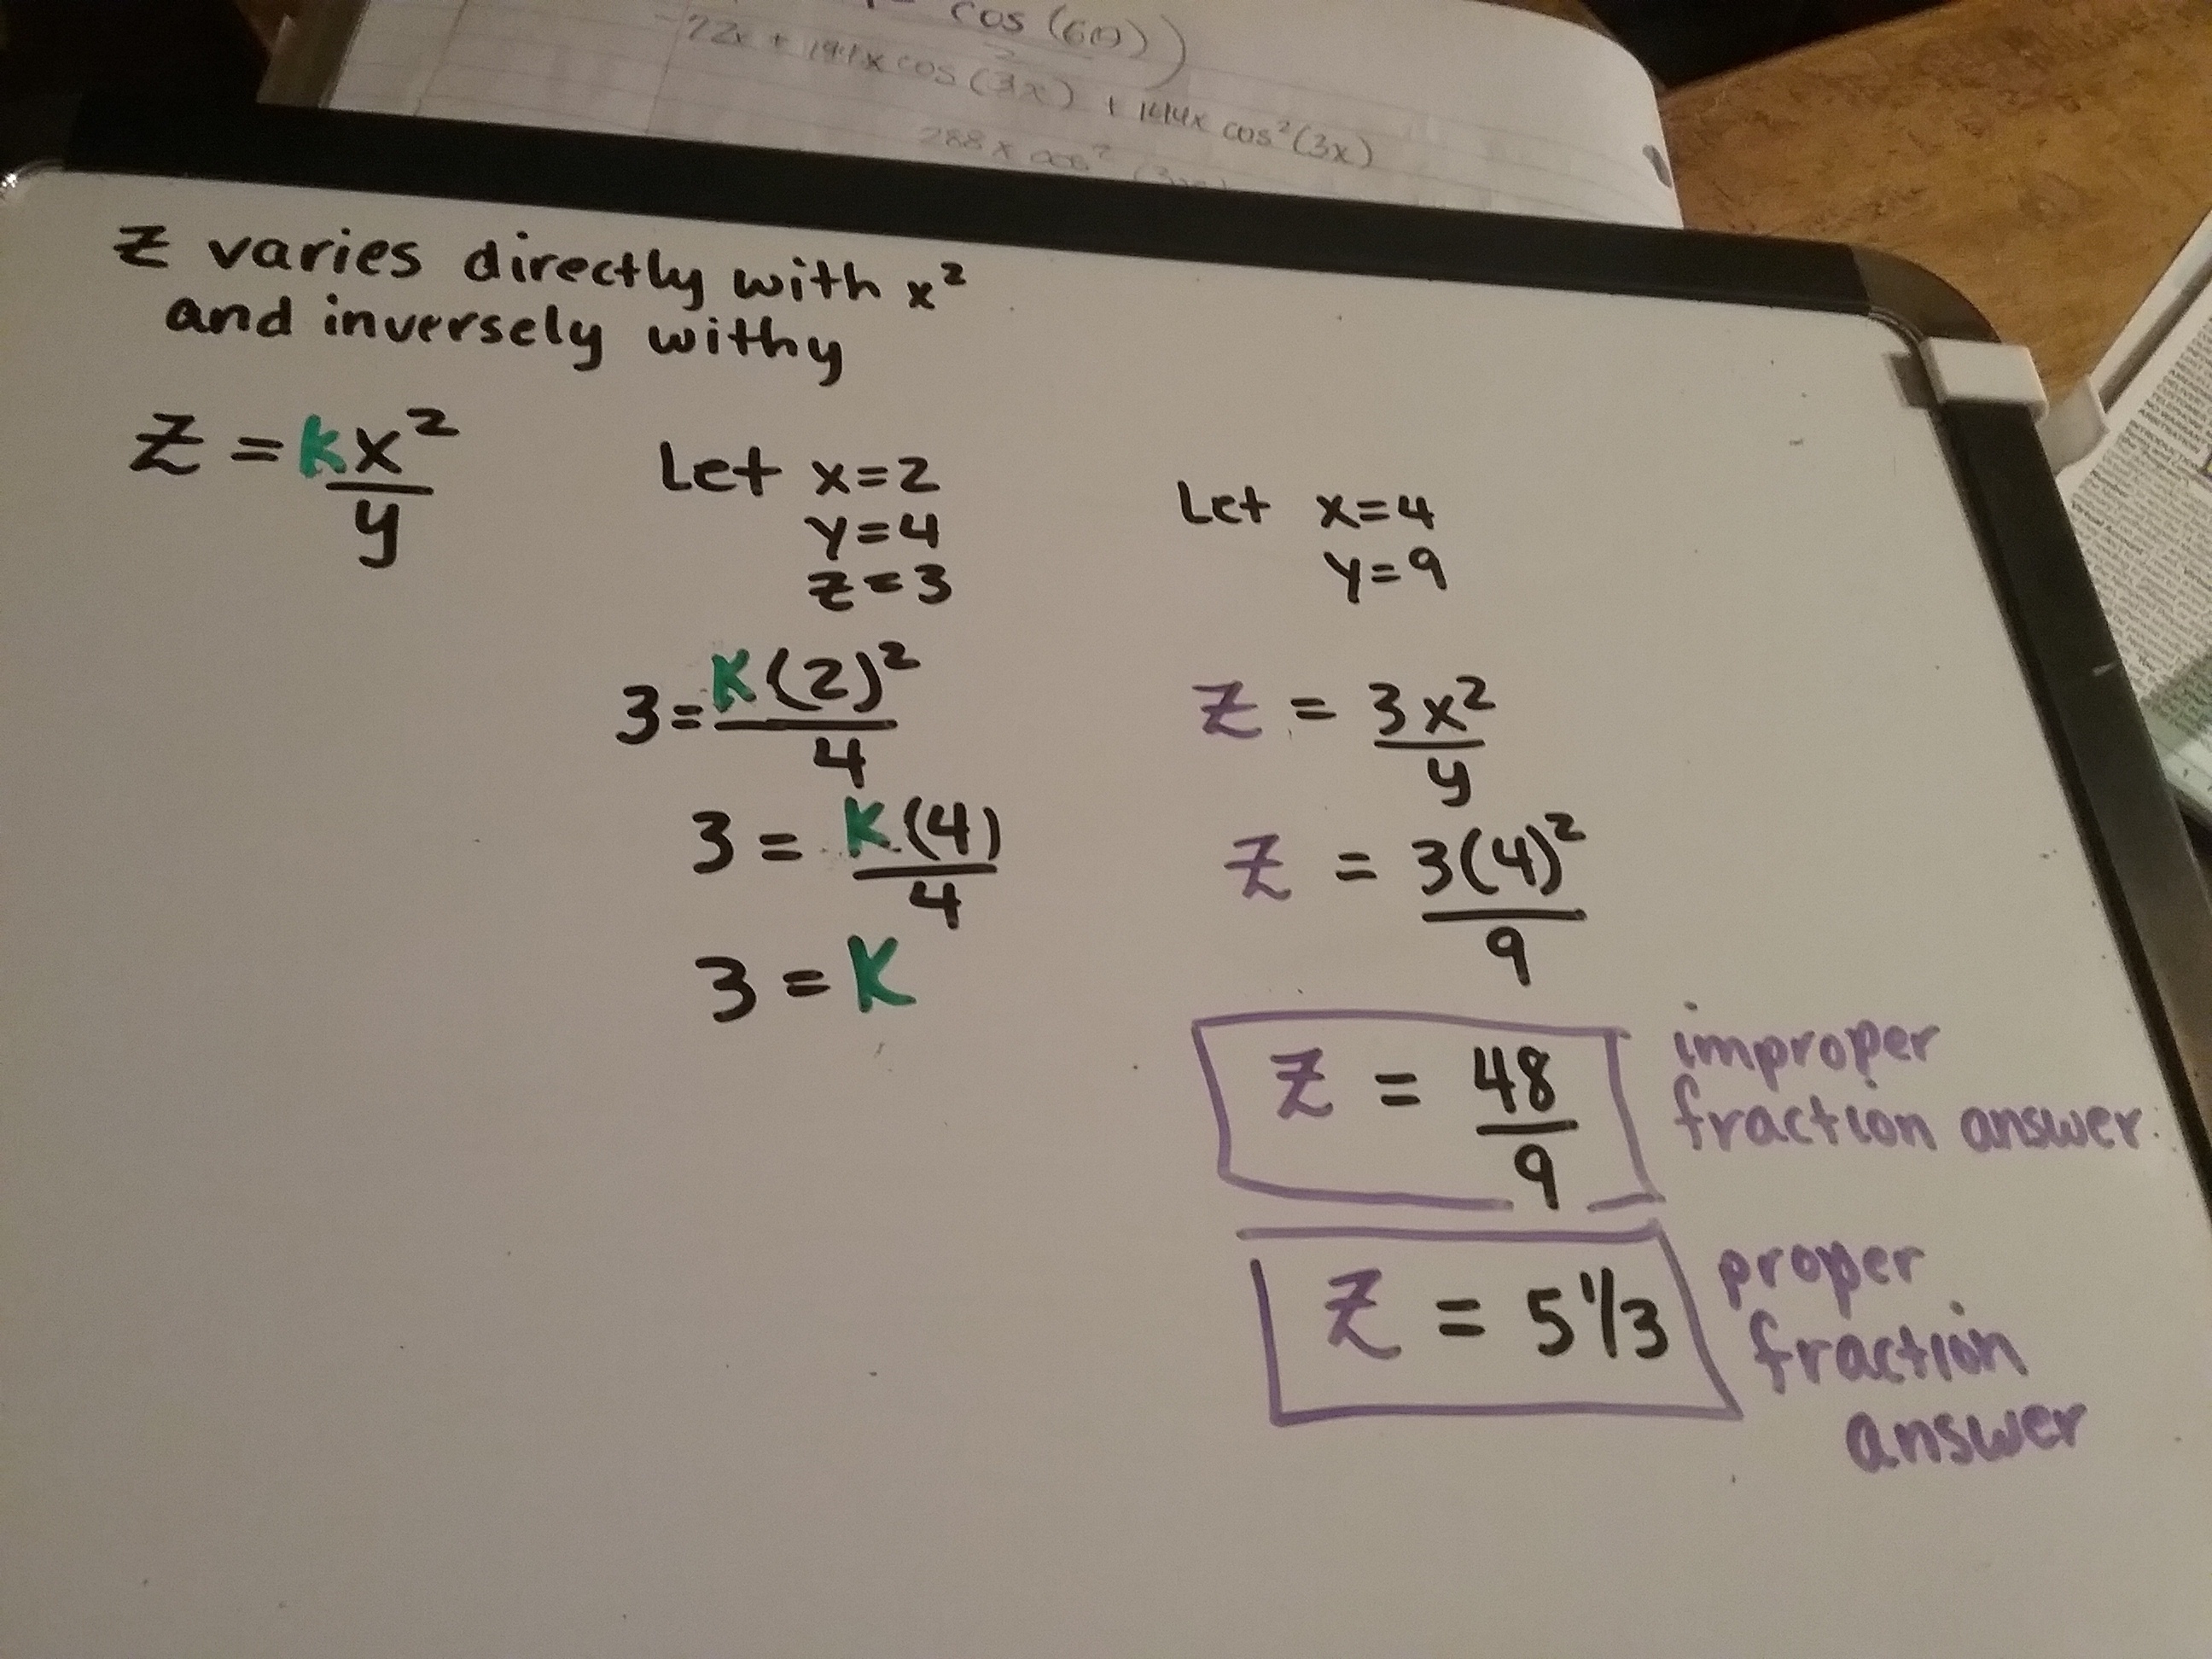 cos (6θ))
2
-72x + 144x cos (3x) + 144x cos²(3x)
288x cos²
z varies directly with x²
and inversely with y
z = kx²
y
Let x=2
y=4
z=3
3=k(2)²
4
3 = k(4)
4
3 = k
Let x=4
y=9
z = 3x²
y
z = 3(4)²
9
z = 48
9
improper
fraction answer
z = 5 1/3
proper
fraction
answer